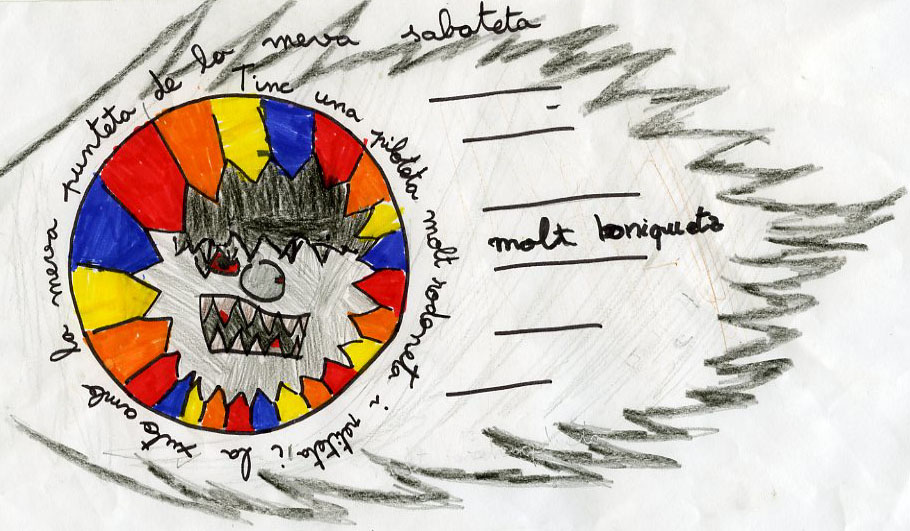 Tinc una piloteta molt rodoneta i petiteta i la xuto amb la meva punteta de la meva sabateta
molt boniqueta